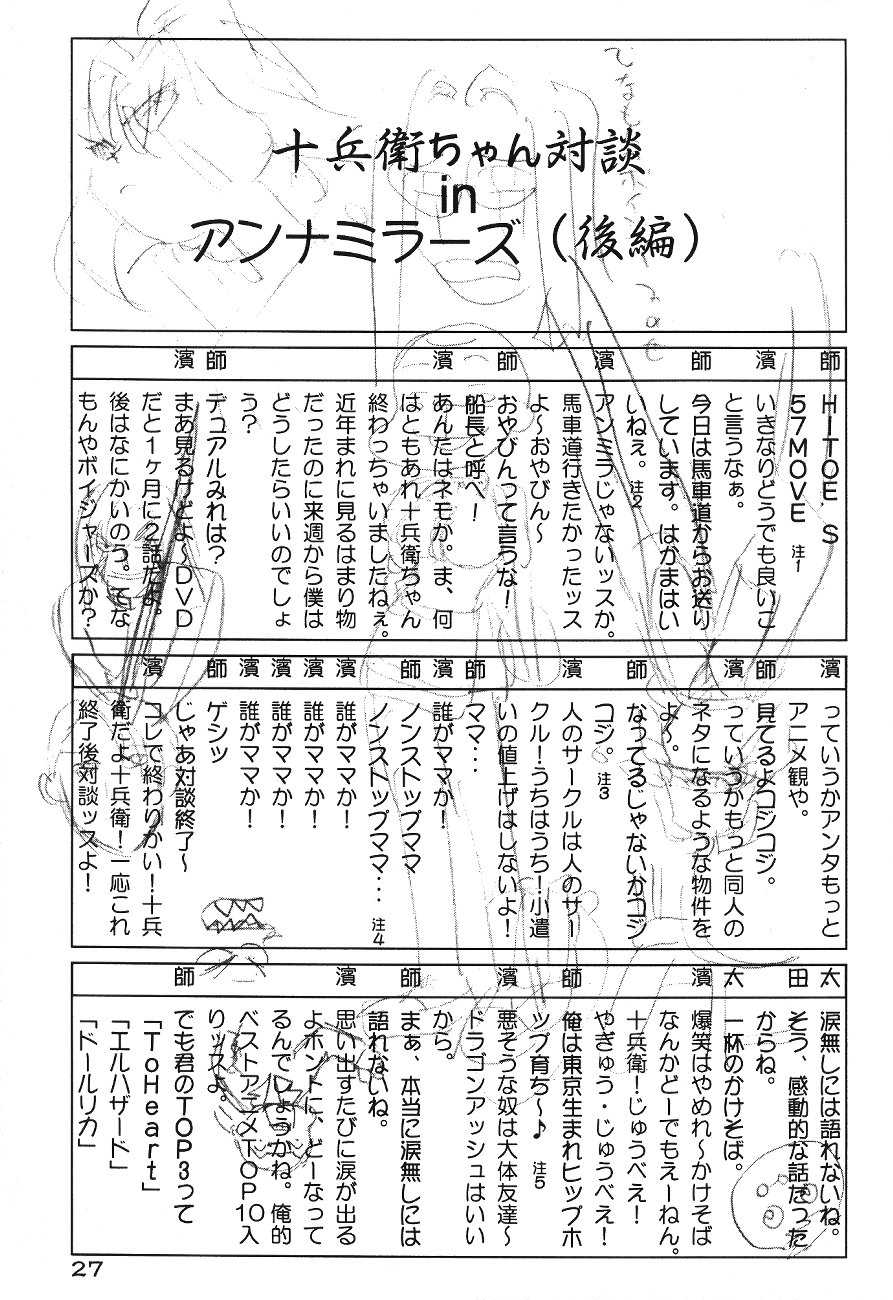 十兵衛ちゃん対談
in
アンナミラーズ（後編）
師 HITOE S
57MOVE 注1
濱 いきなりどうでも良いこ
と言うなぁ。
師 今日は馬車道からお送り
しています。はかまはい
いねぇ。注2
濱 アンミラじゃないッスか。
馬車道行きたかったッス
よ～おやびん～
師 おやびんって言うな！
船長と呼べ！
濱 あんたはネモか。ま、何
はともあれ十兵衛ちゃん
終わっちゃいましたねぇ。
近年まれに見るはまり物
だったのに来週から僕は
どうしたらいいのでしょ
う？
師 デュアルみれば？
濱 まあ見るけどよ～DVD
だと1ヶ月に2話だよ。
後はなにかいのう。てな
もんやボイジャーズか？
濱 っていうかアンタもっと
アニメ観や。
師 見てるよコジコジ。
濱 っていうかもっと同人の
ネタになるような物件を
よ～。
師 なってるじゃないかコジ
コジ。注3
濱 人のサークルは人のサー
クル！うちはうち！小遣
いの値上げはしないよ！
師 ママ…
濱 誰がママか！
師 ノンストップママ
ノンストップママ… 注4
濱 誰がママか！
濱 誰がママか！
濱 誰がママか！
濱 誰がママか！
師 ゲシッ
じゃあ対談終了～
濱 コレで終わりかい！十兵
衛だよ十兵衛！一応これ
終了後対談ッスよ！
太 涙無しには語れないね。
田 そう、感動的な話だった
からね。
太 一杯のかけそば。
濱 爆笑はやめれ～かけそば
なんかどーでもえーねん。
十兵衛！じゅうべえ！
やぎゅう・じゅうべえ！
師 俺は東京生まれヒップホ
ップ育ち～♪ 注5
濱 悪そうな奴は大体友達～
ドラゴンアッシュはいい
から。
師 まぁ、本当に涙無しには
語れないね。
濱 思い出すたびに涙が出る
よホントに、どーなって
るんでしょうかね。俺的
ベストアニメTOP10入
りッスよ。
師 でも君のTOP3って
「ToHeart」
「エルハザード」
「ドールリカ」
27